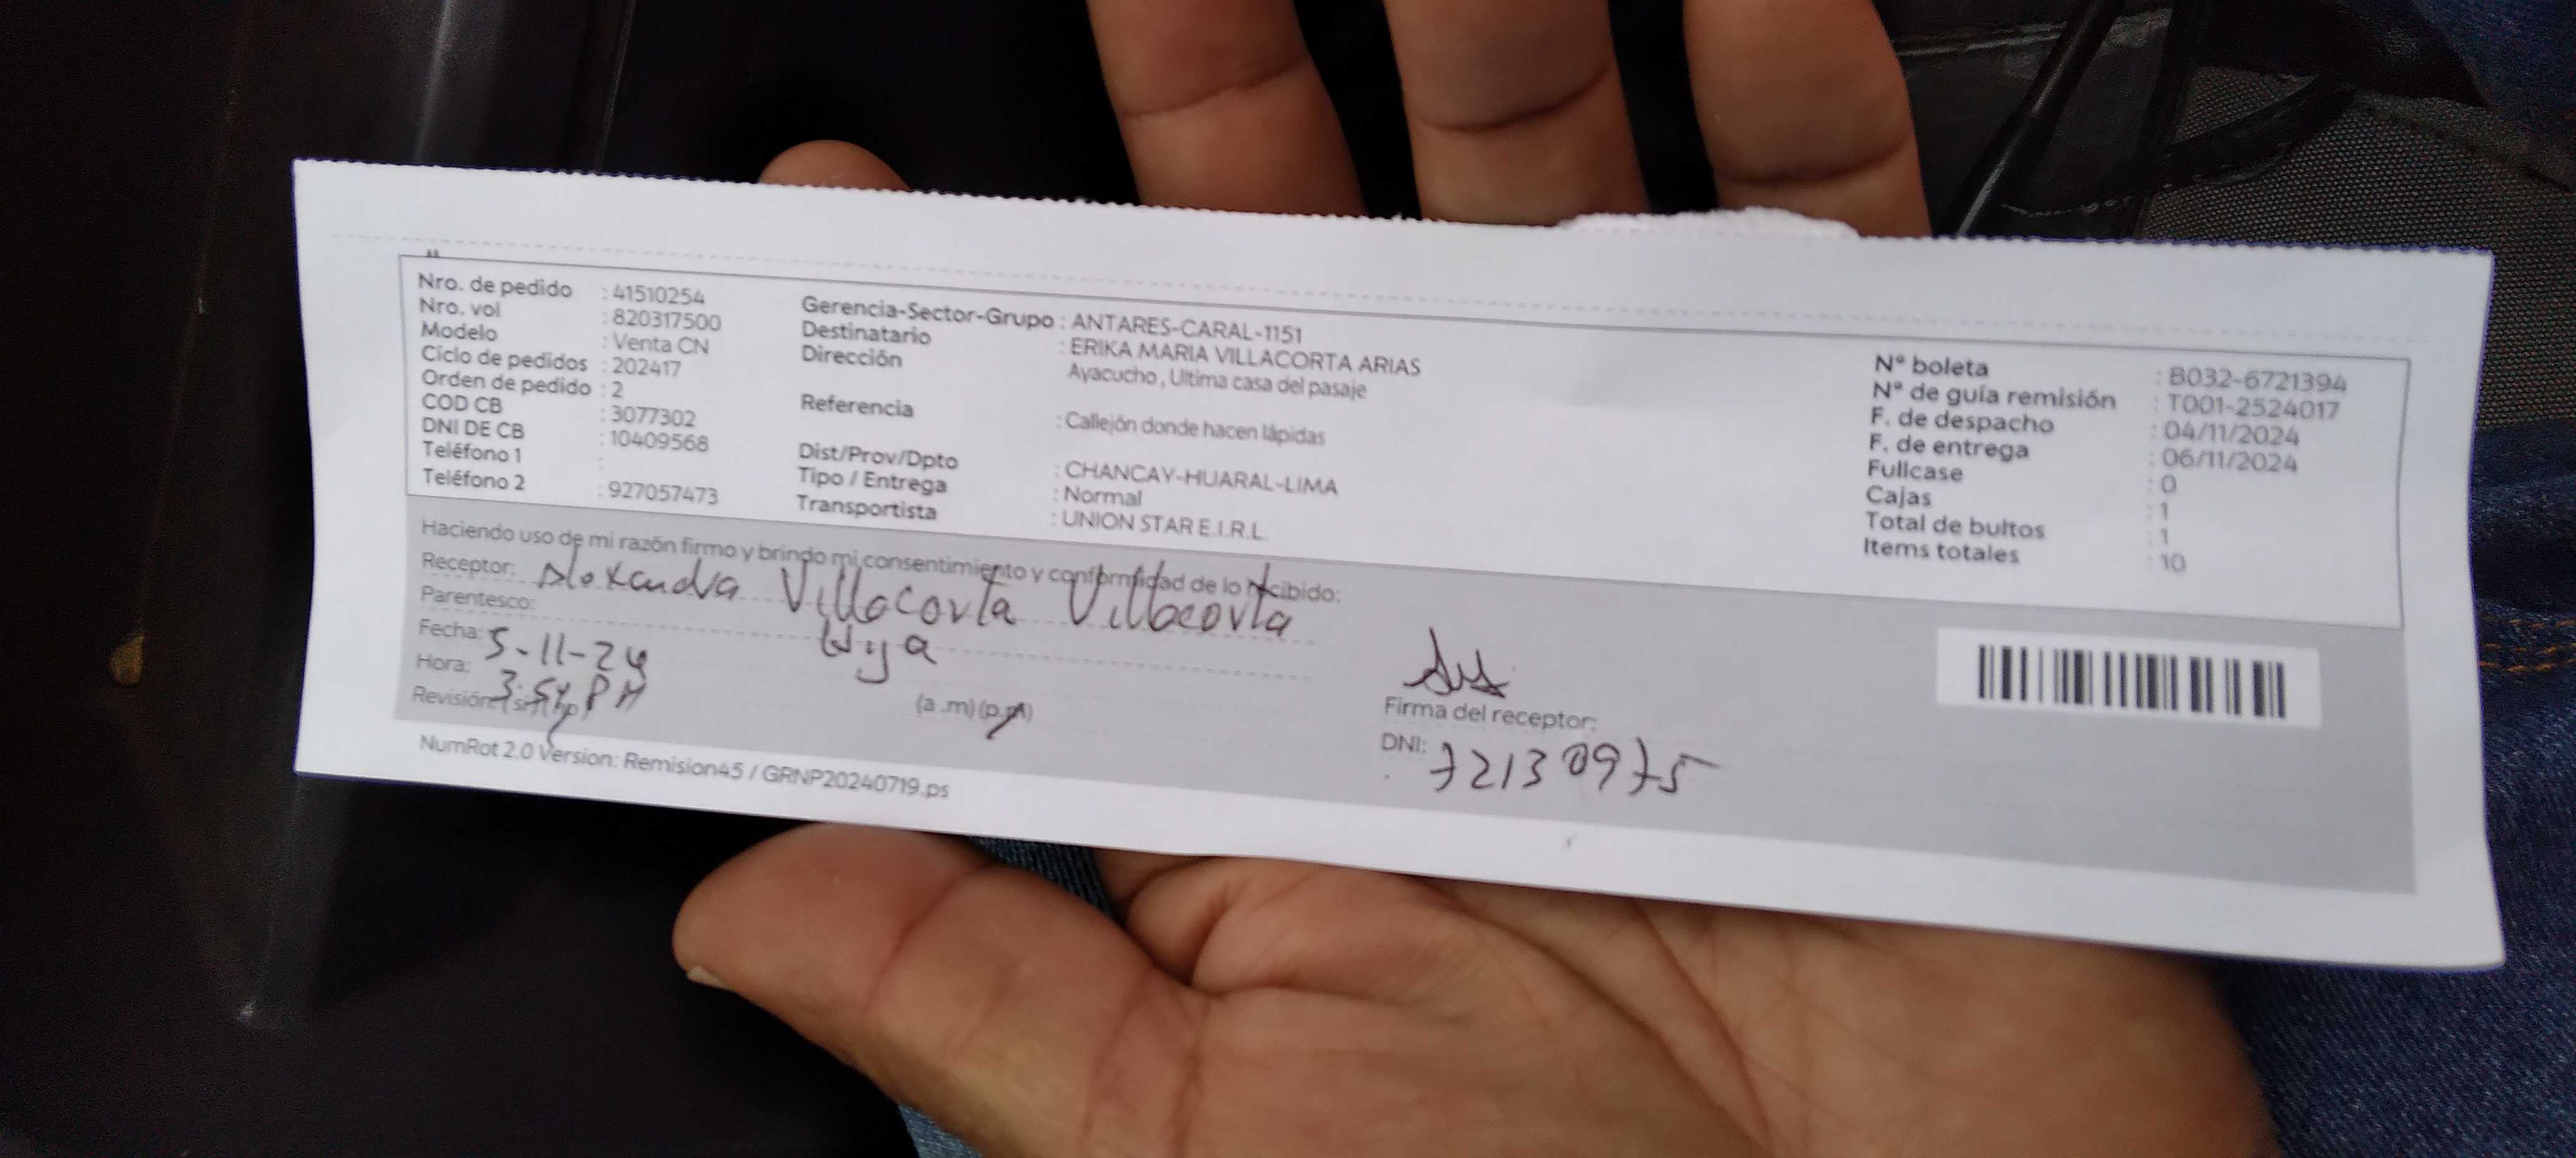 Nro. de pedido : 41510254
Nro. vol : 820317500
Modelo : Venta CN
Ciclo de pedidos : 202417
Orden de pedido : 2
COD CB : 3077302
DNI DE CB : 10409568
Teléfono 1 :
Teléfono 2 : 927057473
Gerencia-Sector-Grupo : ANTARES-CARAL-1151
Destinatario : ERIKA MARIA VILLACORTA ARIAS
Dirección Ayacucho , Ultima casa del pasaje
Referencia : Callejón donde hacen lápidas
Dist/Prov/Dpto : CHANCAY-HUARAL-LIMA
Tipo / Entrega : Normal
Transportista : UNION STAR E.I.R.L.
N° boleta : B032-6721394
N° de guía remisión : T001-2524017
F. de despacho : 04/11/2024
F. de entrega : 06/11/2024
Fullcase : 0
Cajas : 1
Total de bultos : 1
Items totales : 10
Haciendo uso de mi razón firmo y brindo mi consentimiento y conformidad de lo recibido:
Receptor: Alexandra Villacorta Villacorta
Parentesco: Hija
Fecha: 5-11-24
Hora: 3:54 PM (a .m) (p.m)
Revisión: (si) (no)
Firma del receptor:
DNI: 72130975
NumRot 2.0 Version: Remision45 / GRNP20240719.ps